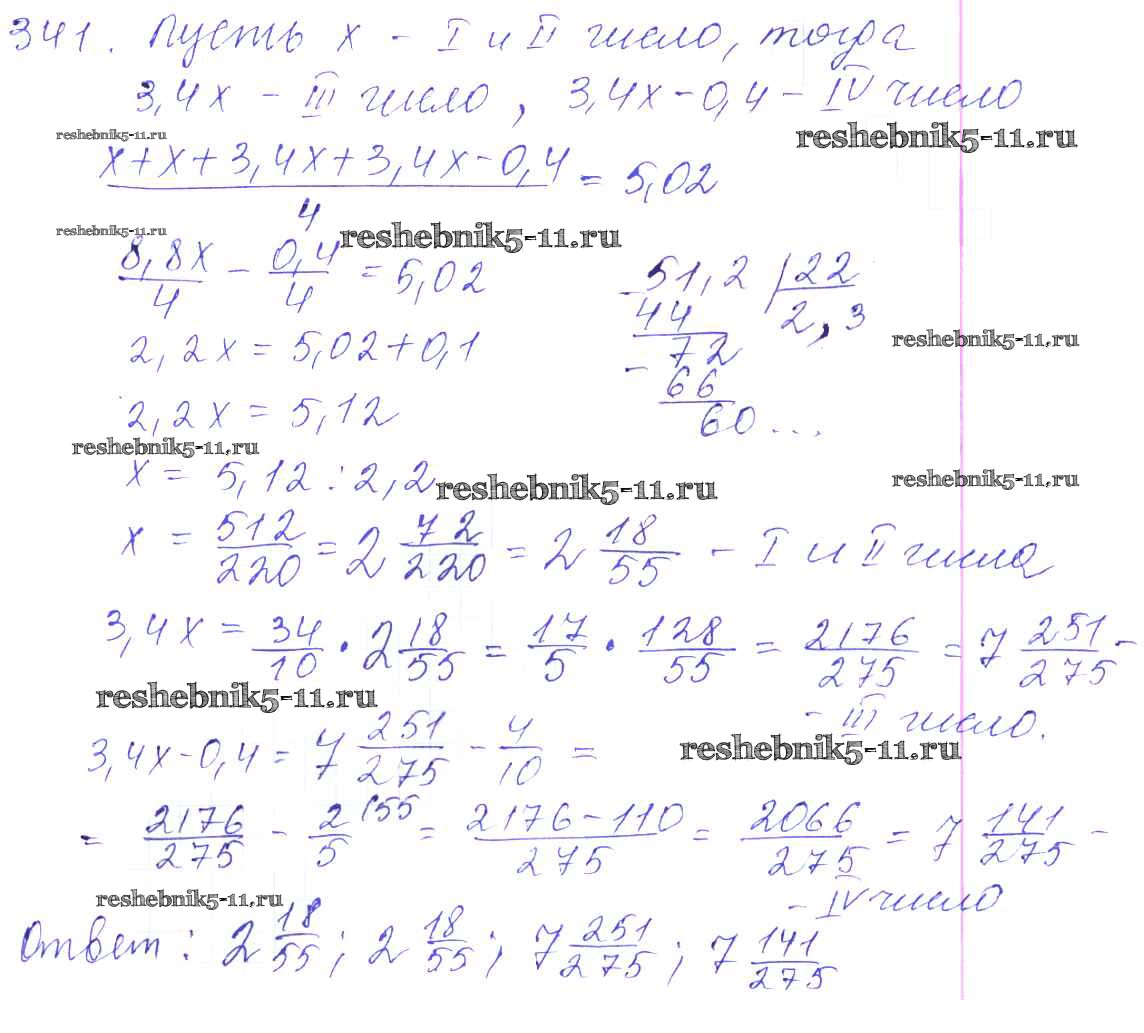 341. Пусть x - I и II число, тогда
3,4x - III число, 3,4x - 0,4 - IV число
reshebnik5-11.ru
reshebnik5-11.ru
(x+x+3,4x+3,4x-0,4)/4 = 5,02
reshebnik5-11.ru
reshebnik5-11.ru
8,8x/4 - 0,4/4 = 5,02
51,2 | 22
44 2,3
2,2x = 5,02+0,1
- 72
reshebnik5-11.ru
66
2,2x = 5,12
60...
reshebnik5-11.ru
x = 5,12 : 2,2
reshebnik5-11.ru
reshebnik5-11.ru
x = 512/220 = 2 72/220 = 2 18/55 - I и II числа
3,4x = 34/10 · 2 18/55 = 17/5 · 128/55 = 2176/275 = 7 251/275 -
reshebnik5-11.ru
- III число.
3,4x - 0,4 = 7 251/275 - 4/10 =
reshebnik5-11.ru
= 2176/275 - 2/5 (55 = (2176-110)/275 = 2066/275 = 7 141/275 -
reshebnik5-11.ru
- IV число
Ответ: 2 18/55; 2 18/55; 7 251/275; 7 141/275